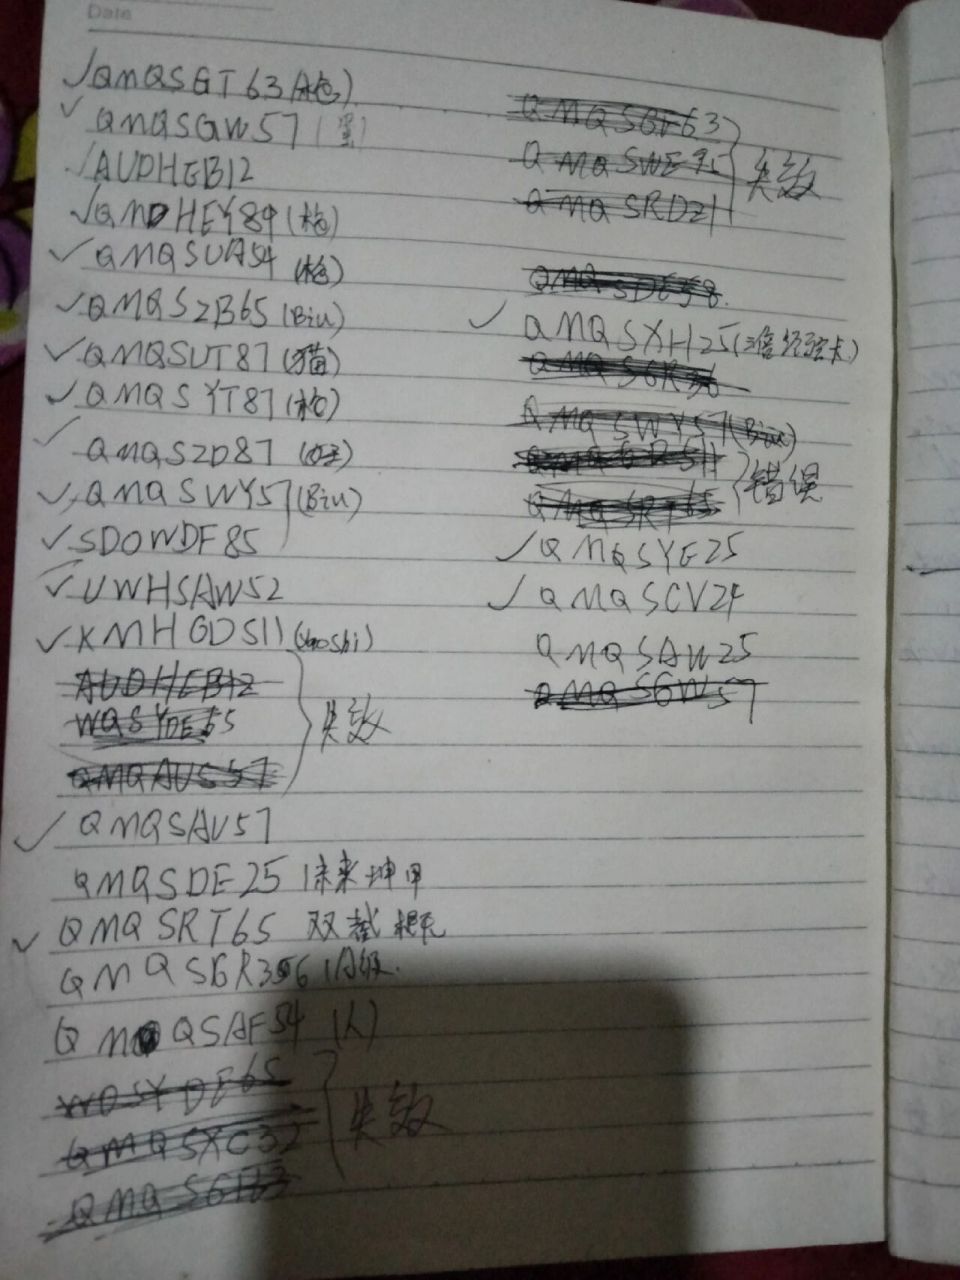 Date
QMQSGT63
QMQSGW57
AUDHEB12
QMDHEY89(枪)
QMQSUA54 (枪)
QMQSZB65(Biu)
QMQSUT87(猫)
QMQSYT87(枪)
QMQSZD87
QMQSWY57(Biu)
SDOWDF85
UWHSAW52
KMHGDS11
AUDHEB12
WQSYDE65
失效
QMQAUS57
QMQSAU57
QMQSDE25 未来坤甲
QMQSRT65 双截棍
A级
QSAF54 (人)
WQSYDF65
失效
QMQSXC32
QMQSGT63
QMQSGF63
QMQSWE95
失效
QMQSRD21
QMQSD658
QMQSXH25(三倍经验卡)
QMQSGR36
QMQSWY57(Biu)
错误
QMQSRT65
QMQSYE25
QMQSCV24
QMQSAW25
QMQSGW57